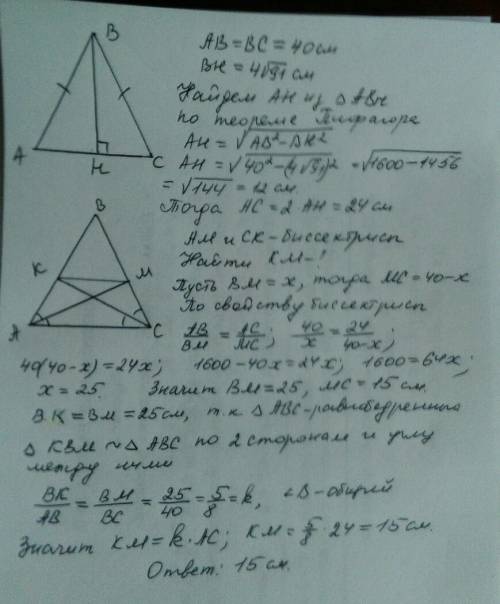 B
A
H
C
AB = BC = 40 см
BH = 4√91 см
Найдем AH из △ ABH
по теореме Пифагора
AH = √AB² - BH²
AH = √40² - (4√91)² = √1600 - 1456
= √144 = 12 см.
Тогда AC = 2 AH = 24 см
B
K
M
A
C
AM и CK - биссектрисы
Найти KM - !
Пусть BM = x, тогда MC = 40 - x
По свойству биссектрисы
AB/BM = AC/MC ; 40/x = 24/40-x ;
40(40 - x) = 24x ; 1600 - 40x = 24x ; 1600 = 64x ;
x = 25. Значит BM = 25, MC = 15 см.
BK = BM = 25 см, т.к △ ABC - равнобедренный
△ KBM ~ △ ABC по 2 сторонам и углу
между ними
BK/AB = BM/BC = 25/40 = 5/8 = k, ∠B - общий
Значит KM = k · AC ; KM = 5/8 · 24 = 15 см.
Ответ: 15 см.